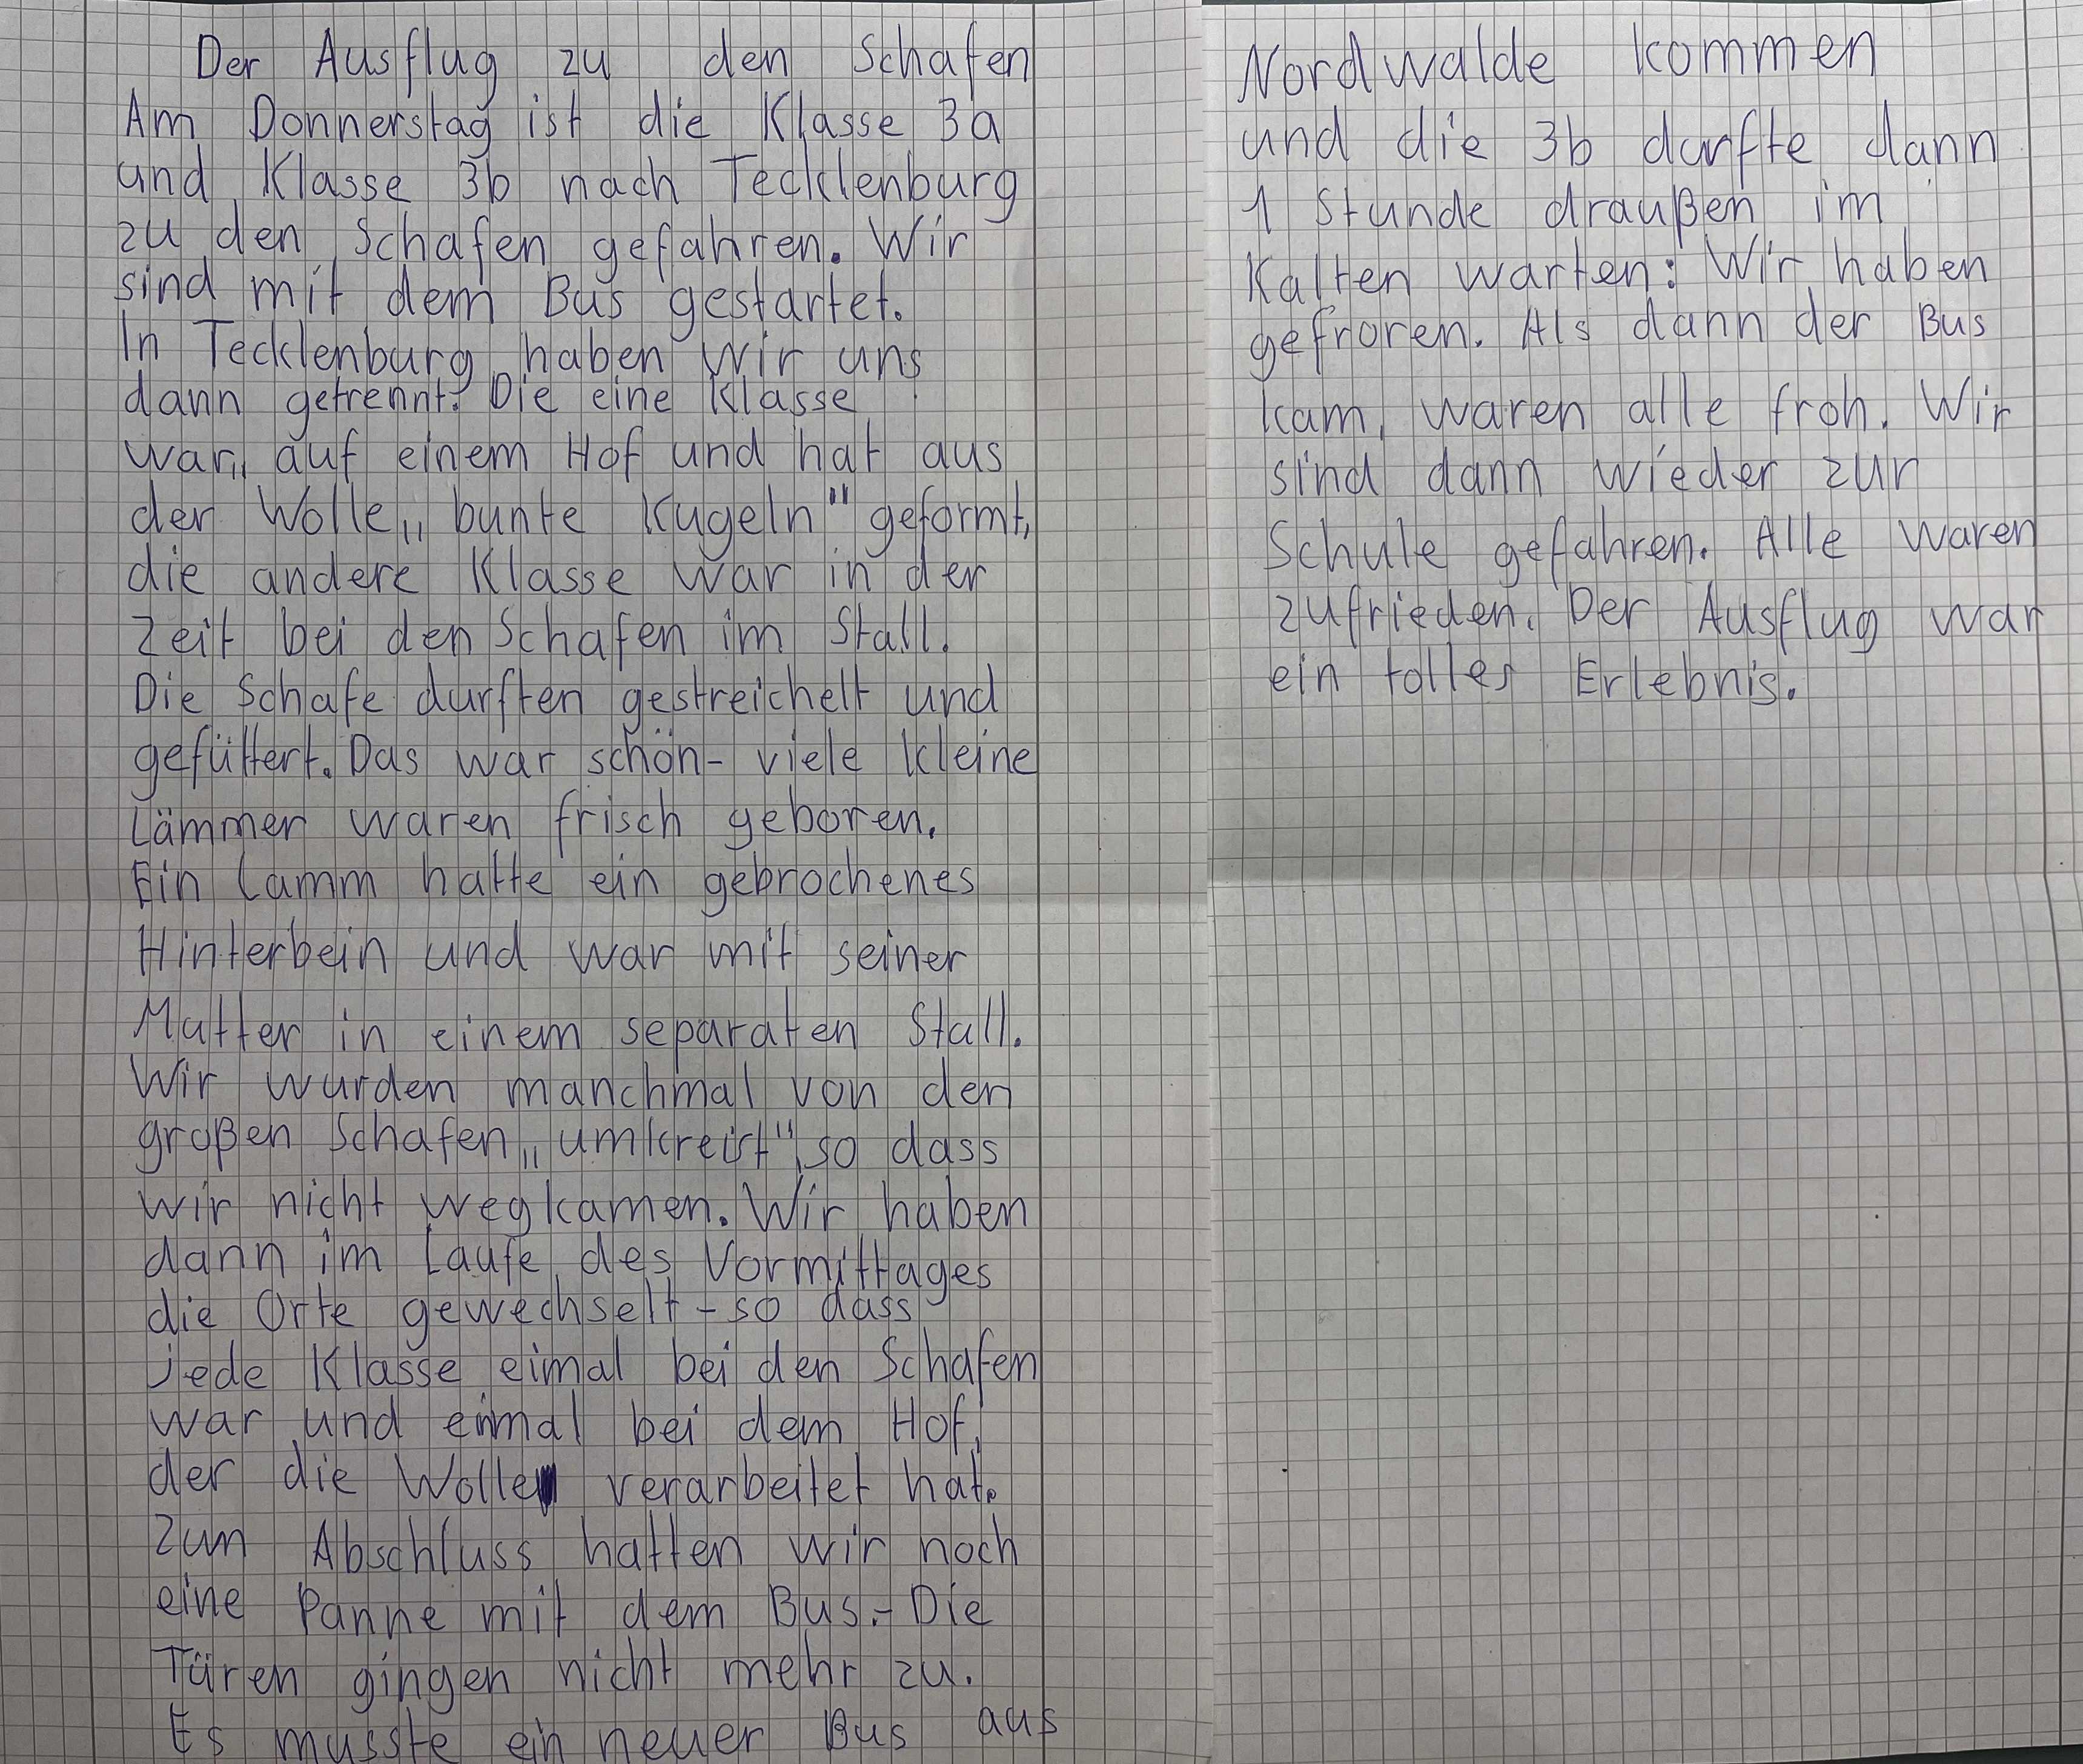 Der Ausflug zu den Schafen
Am Donnerstag ist die Klasse 3a
und Klasse 3b nach Tecklenburg
zu den Schafen gefahren. Wir
sind mit dem Bus gestartet.
In Tecklenburg haben wir uns
dann getrennt: Die eine Klasse
war„ auf einem Hof und hat aus
der Wolle„ bunte Kugeln" geformt,
die andere Klasse war in der
Zeit bei den Schafen im Stall.
Die Schafe durften gestreichelt und
gefüttert. Das war schön- viele kleine
Lämmer waren frisch geboren.
Ein Lamm hatte ein gebrochenes
Hinterbein und war mit seiner
Mutter in einem separaten Stall.
Wir wurden manchmal von den
großen Schafen„ umkreist", so dass
wir nicht wegkamen. Wir haben
dann im Laufe des Vormittages
die Orte gewechselt - so dass
jede Klasse eimal bei den Schafen
war und einmal bei dem Hof,
der die Wolle verarbeitet hat.
Zum Abschluss hatten wir noch
eine Panne mit dem Bus.- Die
Türen gingen nicht mehr zu.
Es musste ein neuer Bus aus
Nordwalde kommen
und die 3b durfte dann
1 Stunde draußen im
Kalten warten: Wir haben
gefroren. Als dann der Bus
kam, waren alle froh. Wir
sind dann wieder zur
Schule gefahren. Alle waren
zufrieden. Der Ausflug war
ein tolles Erlebnis.